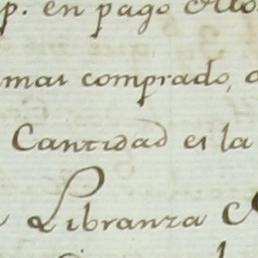 p. en pago
mas comprado,
Cantidad es la
Libranza